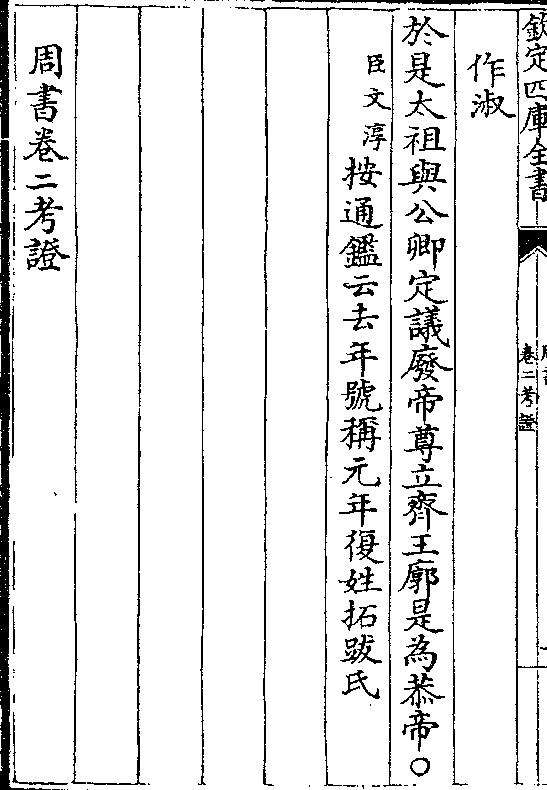 欽定四庫全書
卷二考證
作淑
於是太祖與公卿定議廢帝尊立齊王廓是為恭帝○
臣文淳按通鑑云去年號稱元年復姓拓跋氏
周書卷二考證